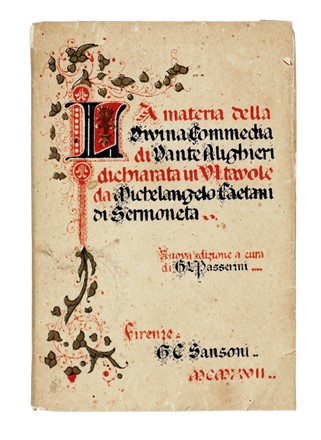 LA materia della
Divina Commedia
di Dante Alighieri
dichiarata in VI tavole
da Michelangelo Caetani
di Sermoneta..
Nuova edizione a cura
di G.L. Passerini ....
Firenze-
G. C. Sansoni ..